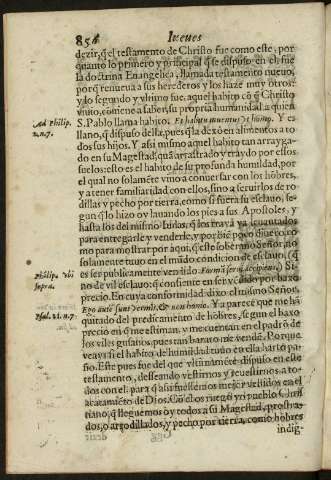 854 Iueues
dezir, q̃ el testamento de Christo fue como este, por
quanto lo primero y principal q̃ se dispuso en el, fue
la doctrina Euangelica, llamada testamento nueuo,
porq̃ renueua a sus herederos y los haze muy otros:
y lo segundo y vltimo fue, aquel habito cõ q̃ Christo
viuio, conuiene a saber, su propria humanidad a quien
S. Pablo llama habito, Et habitu inuentus vt homo. Y es
Ad Philip.
2. n. 7.
llano, q̃ dispuso della, pues q̃ la dexò en alimentos a to
dos sus hijos. Y asi mismo aquel habito tan arrayga-
do en su Magestad, que arrastrado y traydo por essos
suelos: esto es el habito de su profunda humildad, por
el qual no solamẽte vino a conuersar con los hõbres,
y a tener familiaridad con ellos, sino a seruirlos de ro
dillas y pecho por tierra, como si fuera su esclauo, se-
gun q̃ lo hizo oy lauando los pies a sus Apostoles, y
hasta los del mismo Iudas, q̃ los traya ya leuantados
para entregarle y venderle, y por biẽ poco dinero, co
mo para mostrar por aqui, q̃ este soberano Señor, no
solamente tuuo en el mũdo condicion de esclauo, q̃
es ser publicamente vendido. Formã serui accipiens, Si-
Philip. vbi
supra.
no de vil esclauo: q̃ consiente en ser vẽdido por baxo
precio. En cuya conformidad dixo el mismo Señor,
Ego autẽ sum vermis, & non homo. Y a parece que me hã
Psal. 21. n. 7.
quitado del predicamento de hombre, segun el baxo
precio en q̃ me estiman, y me cuentan en el padrõ de
los viles gusanos, pues tan barato me vendẽ. Porque
veays si el habito de humildad tuuo en el harto pa-
ño. Este pues fue del que vltimamẽte dispuso en este
testamento, desseando vestirnos y reuestirnos a to-
dos con el, para q̃ asi fuessemos mejor vestidos en el
acatamiẽto de Dios. Cõ esto ruego yo pueblo Chris
tiano, q̃ lleguemos oy todos a su Magestad, prostra-
dos, o arrodillados, y pecho por tierra, como hõbres
indig